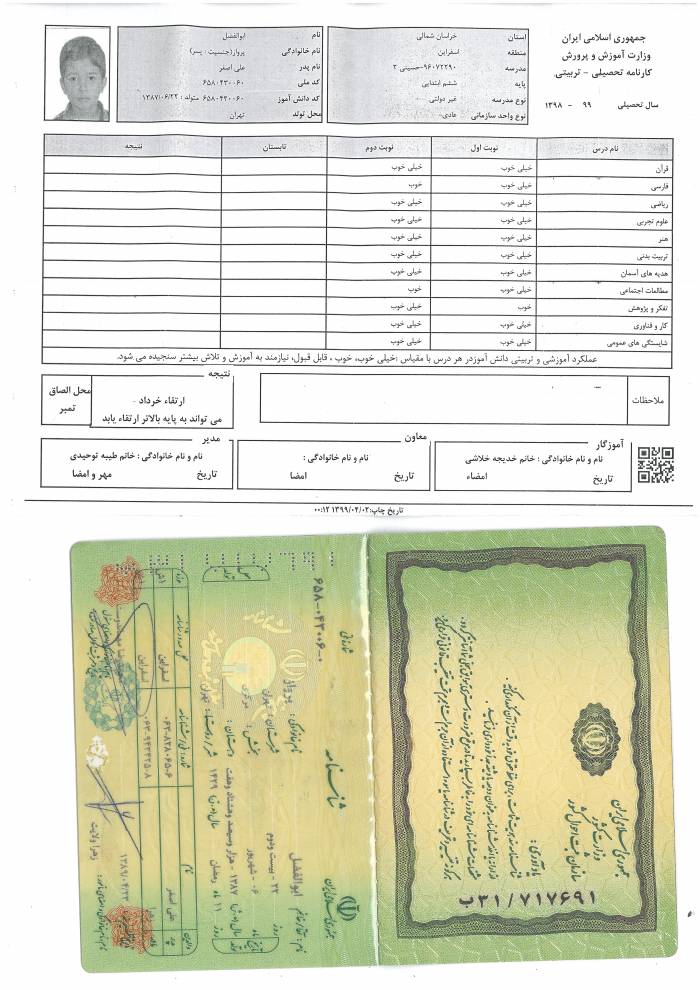 جمهوری اسلامی ایران
وزارت آموزش و پرورش
کارنامه تحصیلی - تربیتی
سال تحصیلی ۹۹ - ۱۳۹۸
استان خراسان شمالی
منطقه اسفراین
مدرسه ۹۶۰۷۲۲۹۰-حسینی ۳
پایه ششم ابتدایی
نوع مدرسه غیر دولتی-
نوع واحد سازمانی عادی-
نام ابوالفضل
نام خانوادگی پرواز(جنسیت : پسر)
نام پدر علی اصغر
کد ملی ۶۵۸۰۴۳۰۰۶۰
کد دانش آموز ۶۵۸۰۴۳۰۰۶۰ متولد : ۱۳۸۷/۰۶/۲۲
محل تولد تهران
نام درس نوبت اول نوبت دوم تابستان نتیجه
قرآن خیلی خوب خیلی خوب
فارسی خیلی خوب خوب
ریاضی خیلی خوب خیلی خوب
علوم تجربی خیلی خوب خیلی خوب
هنر خیلی خوب خیلی خوب
تربیت بدنی خیلی خوب خیلی خوب
هدیه های آسمان خیلی خوب خیلی خوب
مطالعات اجتماعی خیلی خوب خوب
تفکر و پژوهش خوب خیلی خوب
کار و فناوری خیلی خوب خیلی خوب
شایستگی های عمومی خیلی خوب خیلی خوب
عملکرد آموزشی و تربیتی دانش آموزدر هر درس با مقیاس :خیلی خوب، خوب ، قابل قبول، نیازمند به آموزش و تلاش بیشتر سنجیده می شود.
ملاحظات
نتیجه
ارتقاء خرداد
می تواند به پایه بالاتر ارتقاء یابد
محل الصاق
تمبر
آموزگار
نام و نام خانوادگی : خانم خدیجه خلاشی
تاریخ امضاء
معاون
نام و نام خانوادگی :
تاریخ امضا
مدیر
نام و نام خانوادگی : خانم طیبه توحیدی
تاریخ مهر و امضا
تاریخ چاپ:۱۳۹۹/۰۴/۰۲ ۰۰:۱۲
جمهوری اسلامی ایران
وزارت کشور
سازمان ثبت احوال کشور
یادآوری :
ب۳۱/۷۱۷۶۹۱
جمهوری اسلامی ایران
شناسنامه
۶۵۸-۰۴۳۰۰۶-۰
نام : ابوالفضل
۲۲ - بیست و دوم
۰۶ - شهریور
۱۳۸۷ - هزار و سیصد و هشتاد و هفت
۱۱ ماه رمضان ۱۴۲۹
نام خانوادگی : پرواز
شهرستان : تهران
بخش : مرکزی
دهستان :
تهران
نام
علی اصغر
زهرا
اسفراین
اسفراین
۰۶۳-۹۴۴۲۵۰۸
۱۳۸۹/۰۴/۲۳
زهرا ولایت